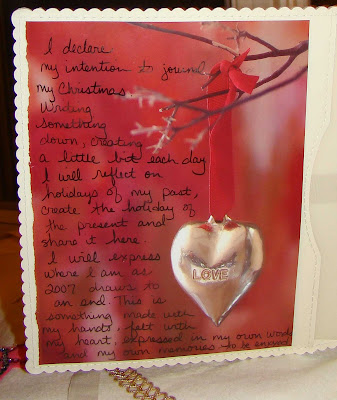 I declare
my intention to journal
my Christmas.
Writing
something
down, creating
a little bit each day
I will reflect on
holidays of my past,
create the holiday of
the present and
share it here.
I will express
where I am as
2007 draws to
an end. This is
something made with
my hands, felt with
my heart, expressed in my own words
and my own memories to be
LOVE